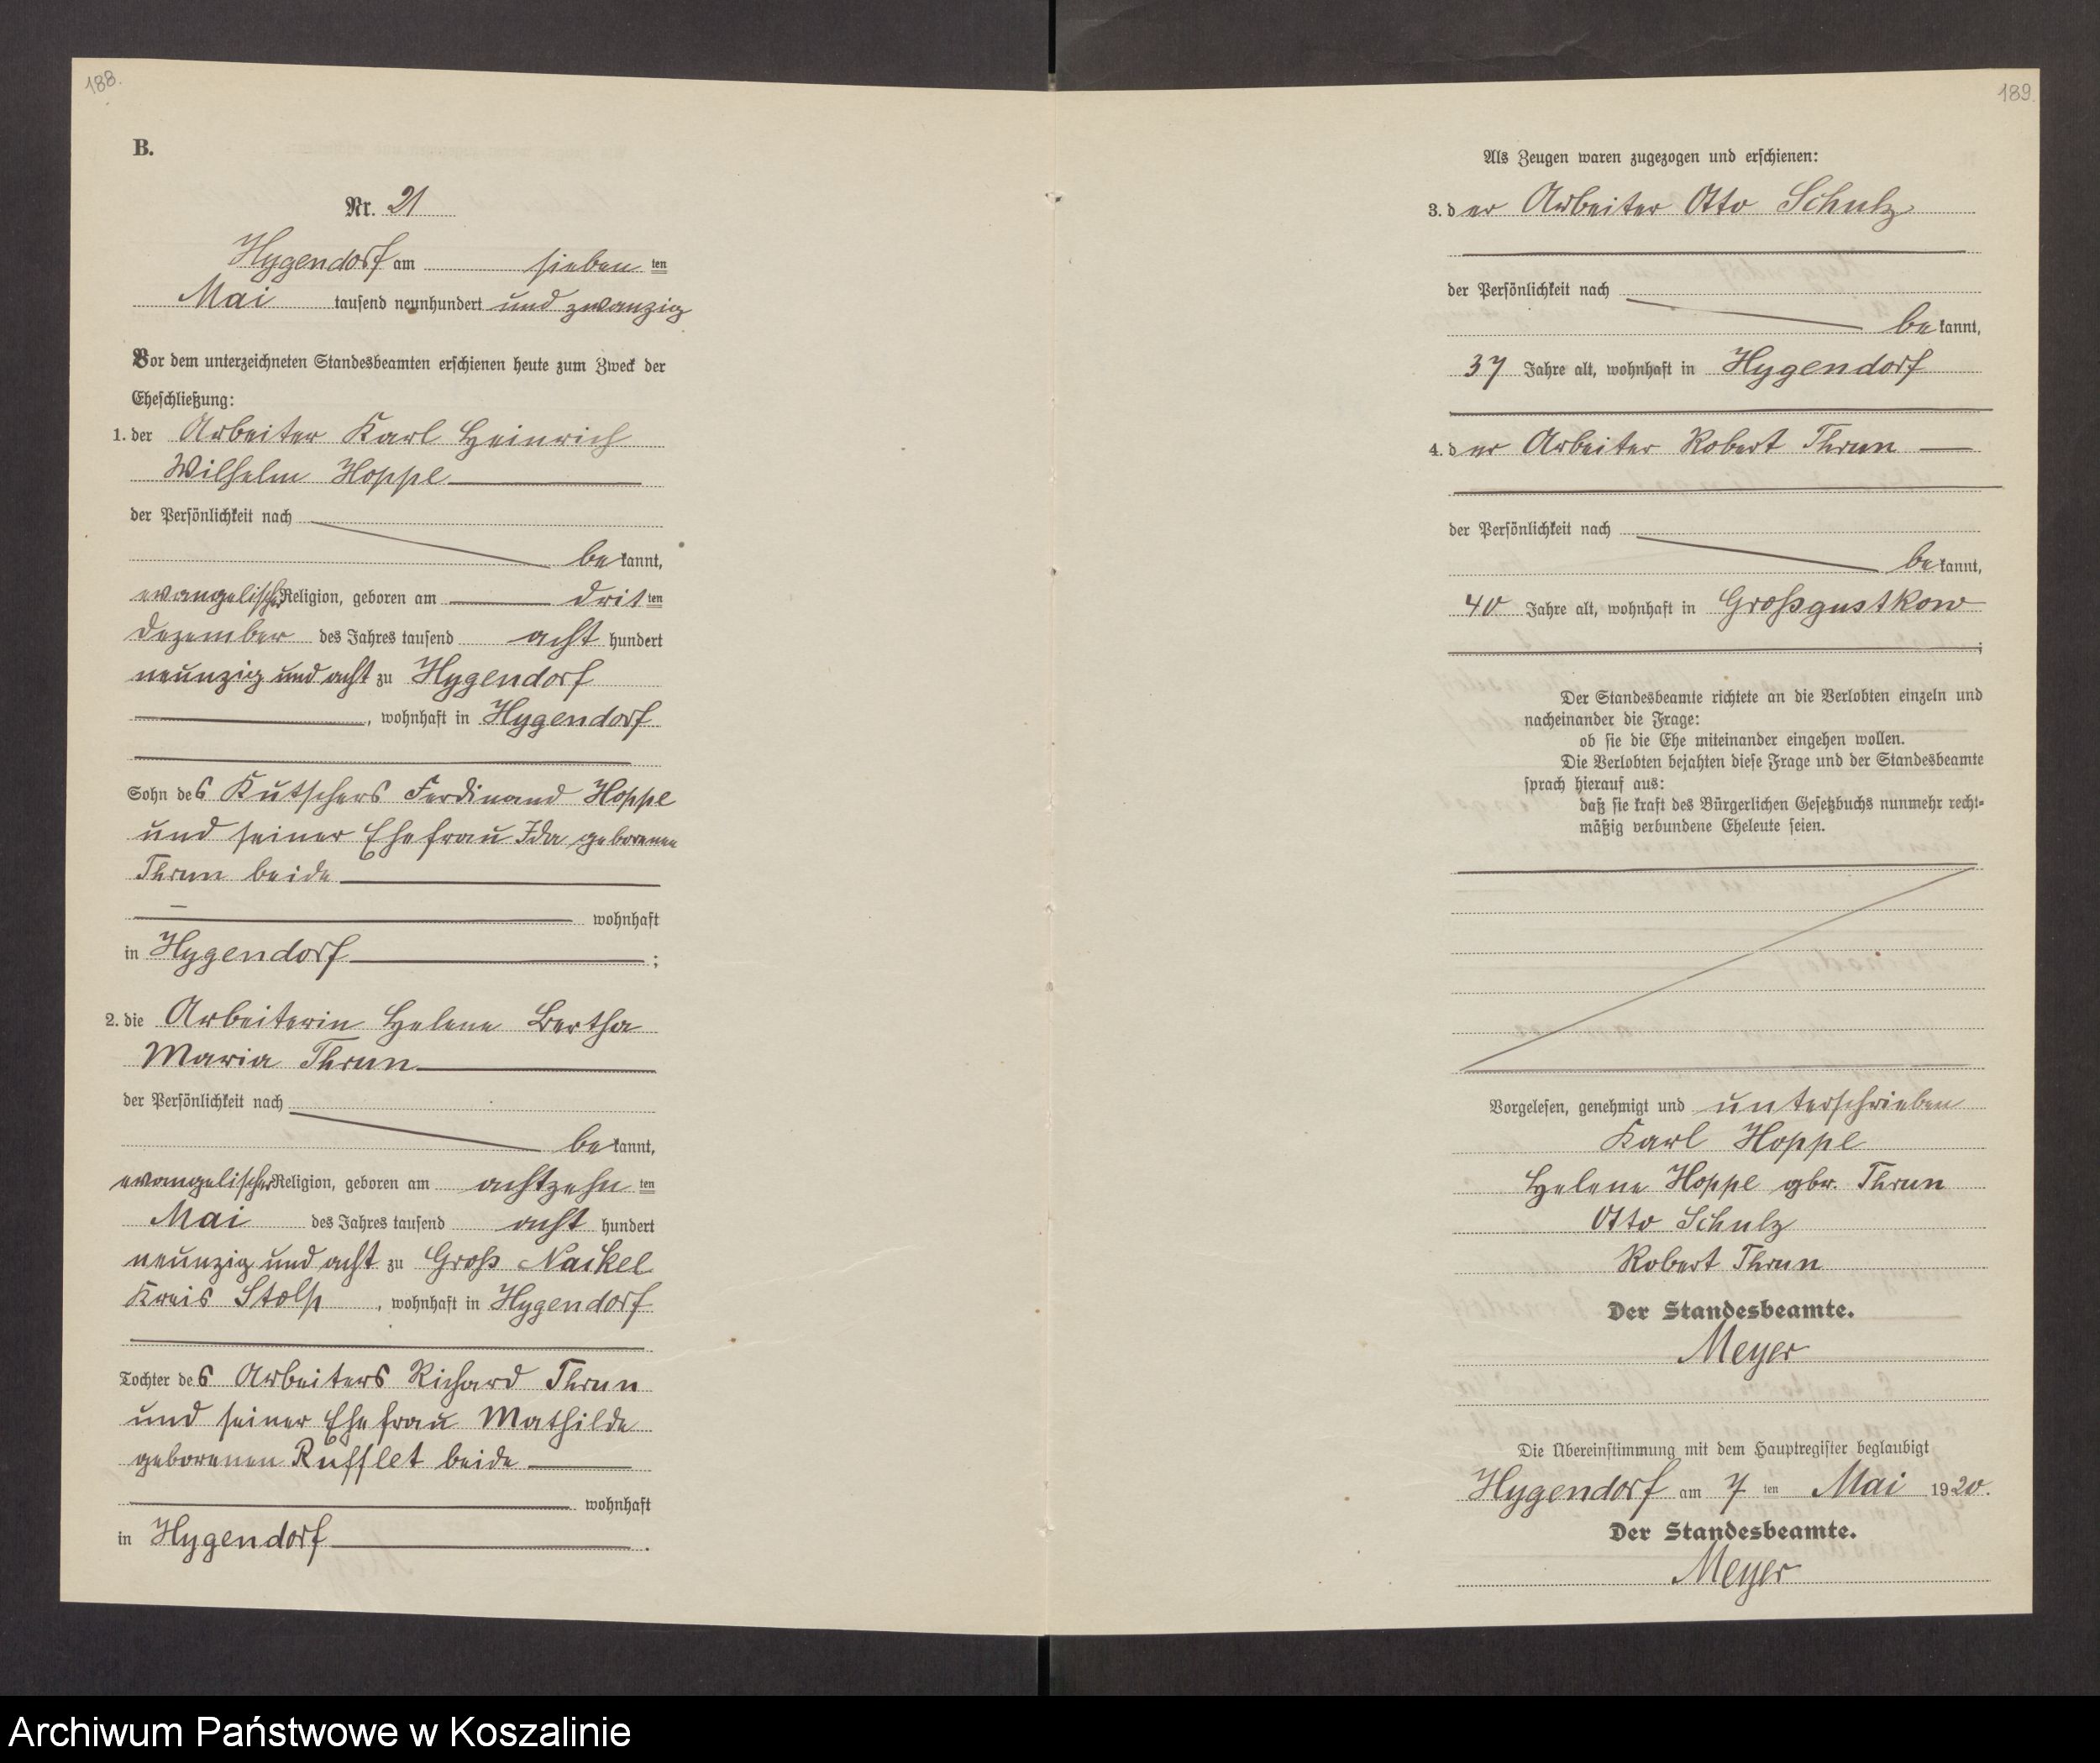 188.
B.
Nr. 21
Hygendorf am sieben ten
Mai tausend neunhundert und zwanzig
Vor dem unterzeichneten Standesbeamten erschienen heute zum Zweck der
Eheschließung:
1. der Arbeiter Karl Heinrich
Wilhelm Hoppe
der Persönlichkeit nach
be kannt,
evangelischer Religion, geboren am drit ten
Dezember des Jahres tausend acht hundert
neunzig und acht zu Hygendorf
, wohnhaft in Hygendorf
Sohn des Kutschers Ferdinand Hoppe
und seiner Ehefrau Ida geborenen
Thrun beide
wohnhaft
in Hygendorf ;
2. die Arbeiterin Helene Bertha
Maria Thrun
der Persönlichkeit nach
be kannt,
evangelischer Religion, geboren am achtzehn ten
Mai des Jahres tausend acht hundert
neunzig und acht zu Groß Nackel
Kreis Stolp , wohnhaft in Hygendorf
Tochter des Arbeiters Richard Thrun
und seiner Ehefrau Mathilde
geborenen Rufflet beide
wohnhaft
in Hygendorf .
189.
Als Zeugen waren zugezogen und erschienen:
3. der Arbeiter Otto Schulz
der Persönlichkeit nach
be kannt,
37 Jahre alt, wohnhaft in Hygendorf
4. der Arbeiter Robert Thrun
der Persönlichkeit nach
be kannt,
40 Jahre alt, wohnhaft in Großgustkow
;
Der Standesbeamte richtete an die Verlobten einzeln und
nacheinander die Frage:
ob sie die Ehe miteinander eingehen wollen.
Die Verlobten bejahten diese Frage und der Standesbeamte
sprach hierauf aus:
daß sie kraft des Bürgerlichen Gesetzbuchs nunmehr recht-
mäßig verbundene Eheleute seien.
Vorgelesen, genehmigt und unterschrieben
Karl Hoppe
Helene Hoppe gbr. Thrun
Otto Schulz
Robert Thrun
Der Standesbeamte.
Meyer
Die Übereinstimmung mit dem Hauptregister beglaubigt
Hygendorf am 7 ten Mai 1920.
Der Standesbeamte.
Meyer
Archiwum Państwowe w Koszalinie